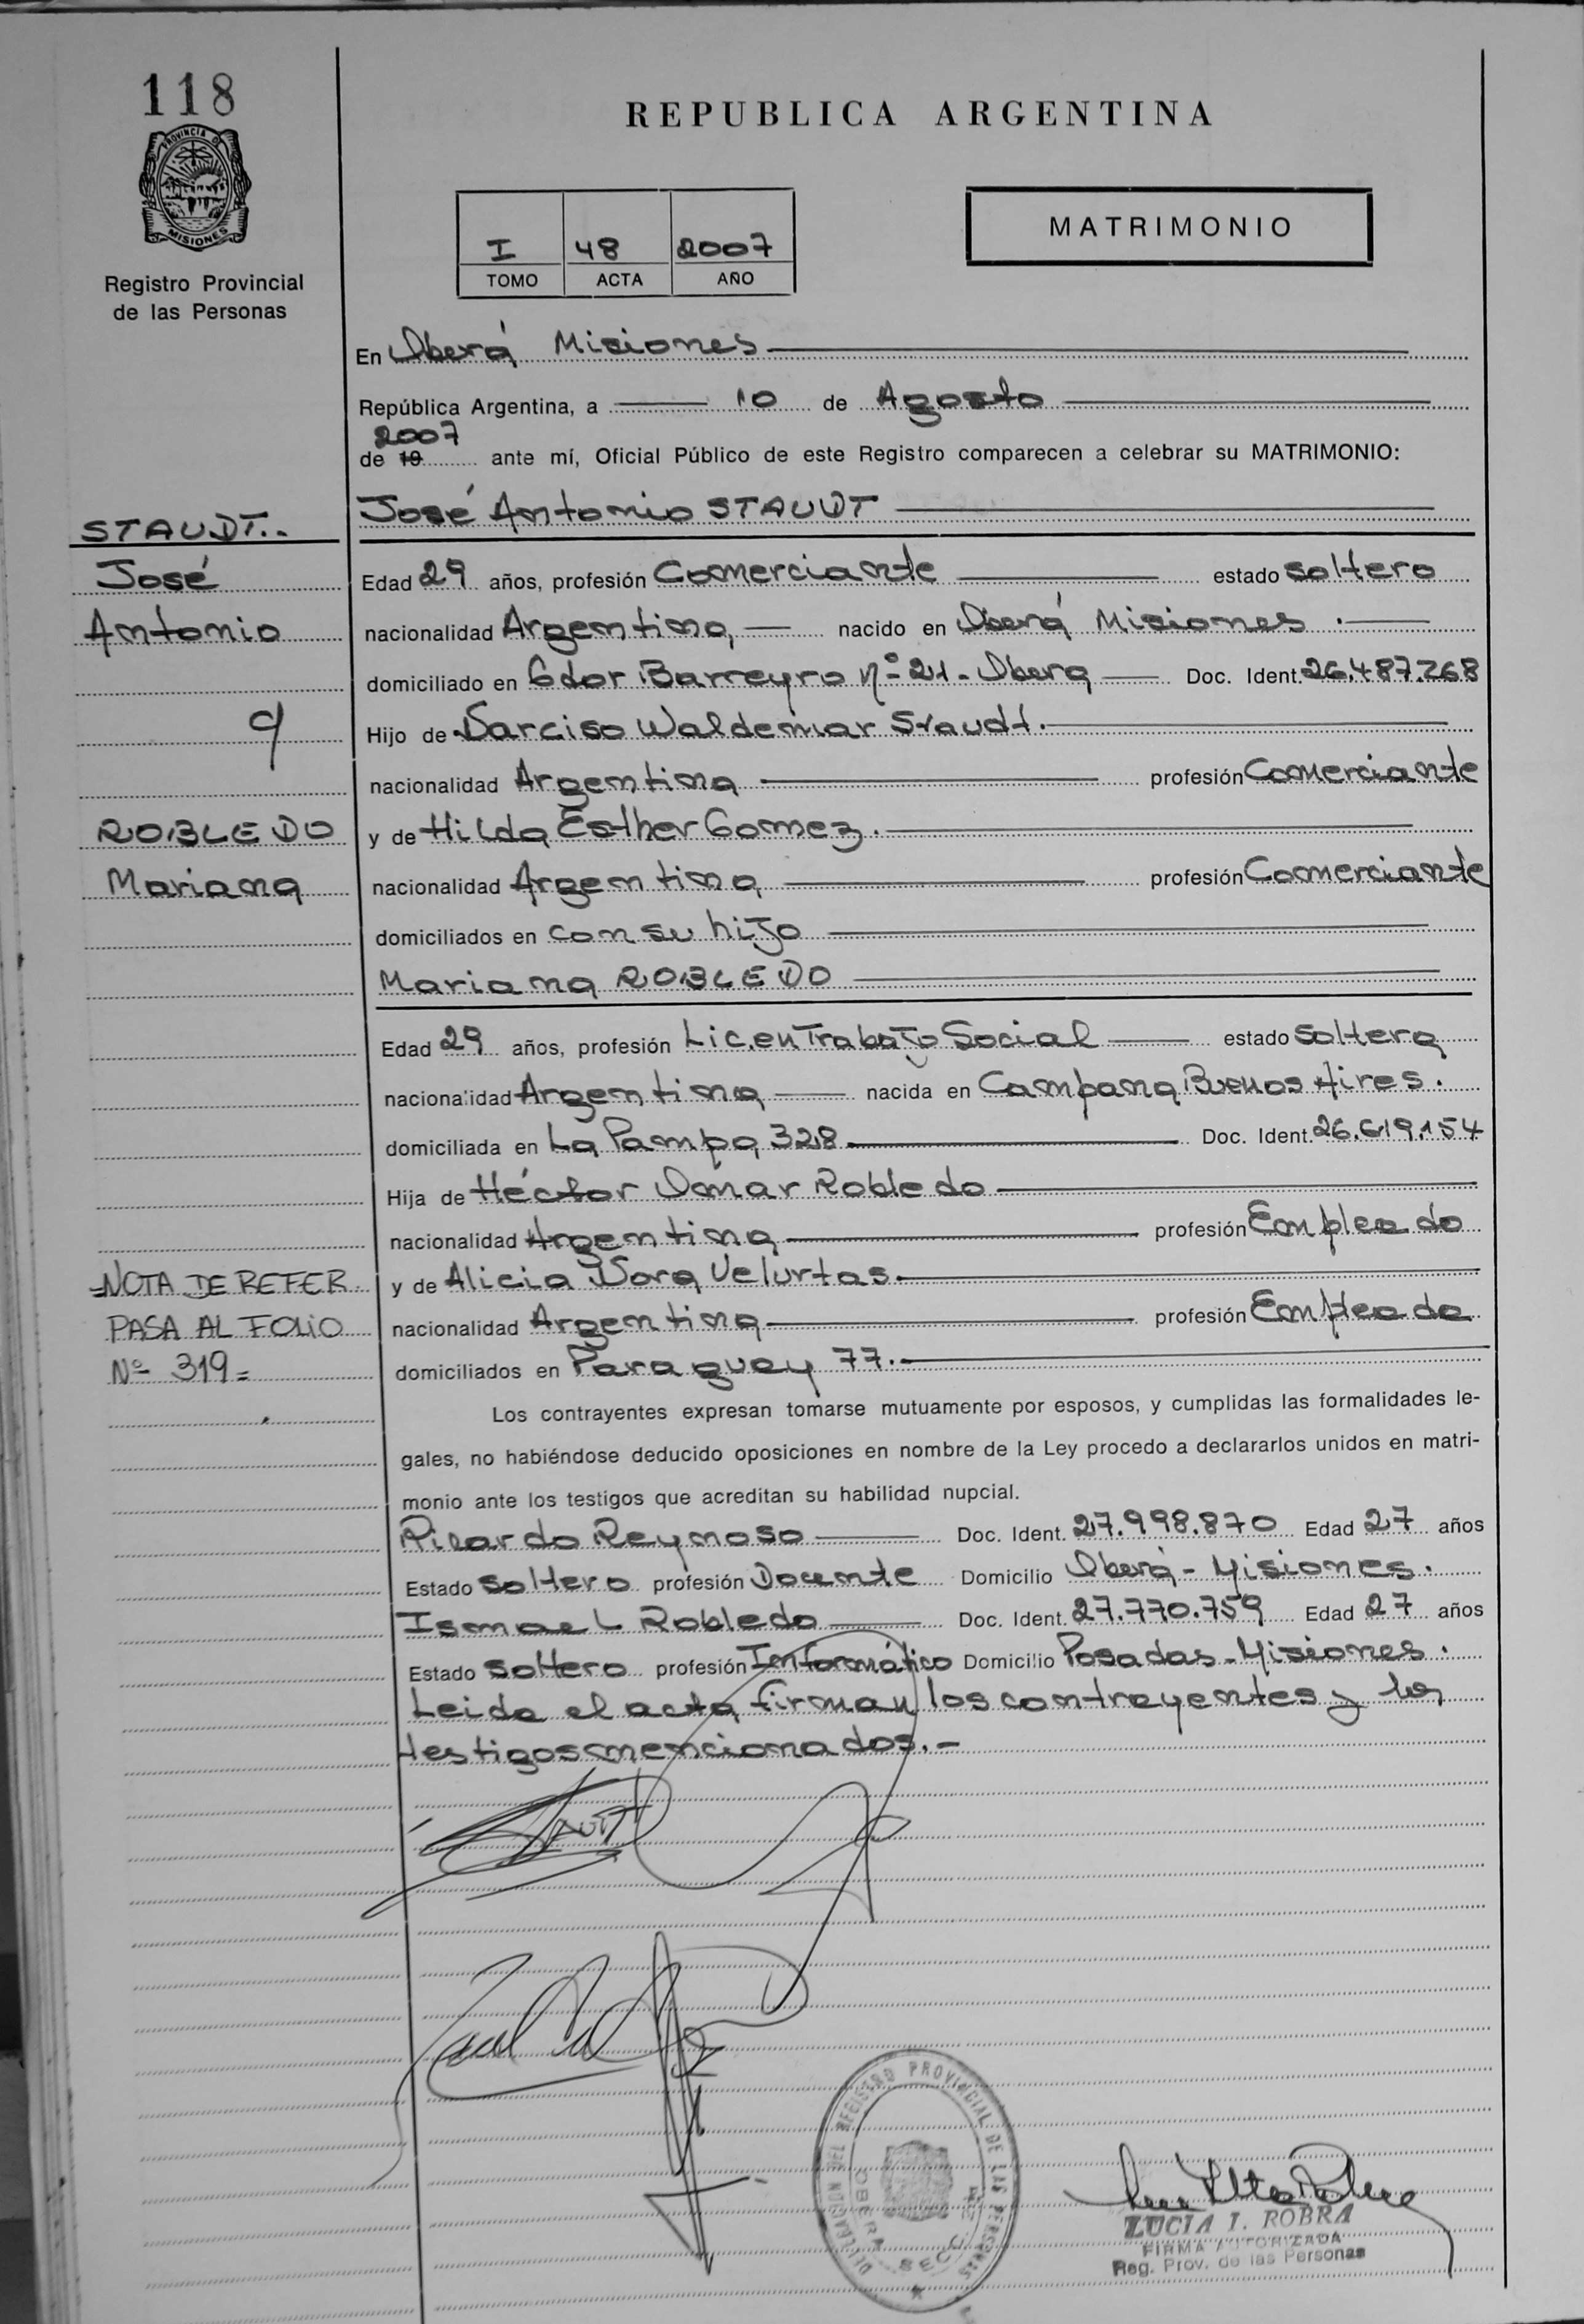 118
PROVINCIA D
MISIONES
Registro Provincial
de las Personas
REPUBLICA ARGENTINA
I 48 2007
TOMO ACTA AÑO
MATRIMONIO
En Oberá Misiones
República Argentina, a 10 de Agosto
2007
de 19 ante mí, Oficial Público de este Registro comparecen a celebrar su MATRIMONIO:
José Antonio STAUDT
Edad 29 años, profesión Comerciante estado soltero
nacionalidad Argentina, nacido en Oberá Misiones .
domiciliado en Gdor Barreyro nº 21 - Obera Doc. Ident. 26.487.268
Hijo de Narciso Waldemar Staudt.
nacionalidad Argentina profesión Comerciante
y de Hilda Esther Gomez.
nacionalidad Argentina profesión Comerciante
domiciliados en con su hijo
Mariana ROBLEDO
Edad 29 años, profesión Lic. en Trabajo Social estado soltera
nacionalidad Argentina nacida en Campana Buenos Aires.
domiciliada en La Pampa 328 Doc. Ident. 26.619.154
Hija de Héctor Omar Robledo
nacionalidad Argentina profesión Empleado
y de Alicia Nora
nacionalidad Argentina profesión Empleada
domiciliados en Paraguay 77.
Los contrayentes expresan tomarse mutuamente por esposos, y cumplidas las formalidades le-
gales, no habiéndose deducido oposiciones en nombre de la Ley procedo a declararlos unidos en matri-
monio ante los testigos que acreditan su habilidad nupcial.
Ricardo Reynoso Doc. Ident. 27.998.870 Edad 27 años
Estado soltero profesión Docente Domicilio Oberá - Misiones.
Ismael Robledo Doc. Ident. 27.770.759 Edad 27 años
Estado soltero profesión Informático Domicilio Posadas - Misiones.
Leida el acta, firman los contrayentes y los
testigos mencionados.-
STAUDT.-
José
Antonio
y
ROBLEDO
Mariana
=NOTA DE REFER.
PASA AL FOLIO
Nº 319=
DELEGACION DEL REGISTRO PROVINCIAL DE LAS PERSONAS
OBERA SECC
LUCIA I. ROBRA
FIRMA AUTORIZADA
Reg. Prov. de las Personas